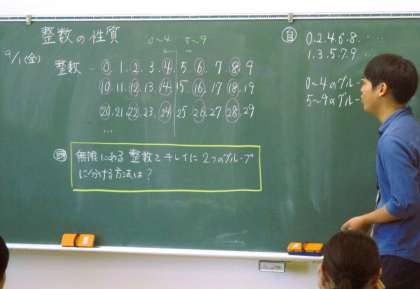 整数の性質
9/1(金)
0~4 5~9
整数 0.1.2.3.4.5.6.7.8.9
10.11.12.13.14.15.16.17.18.19
20.21.22.23.24.25.26.27.28.29
...
無限にある整数をキレイに2つのグループ
に分ける方法は?
自 0.2.4.6.8. ...
1.3.5.7.9. ...
0~4のグループ
5~9のグルー